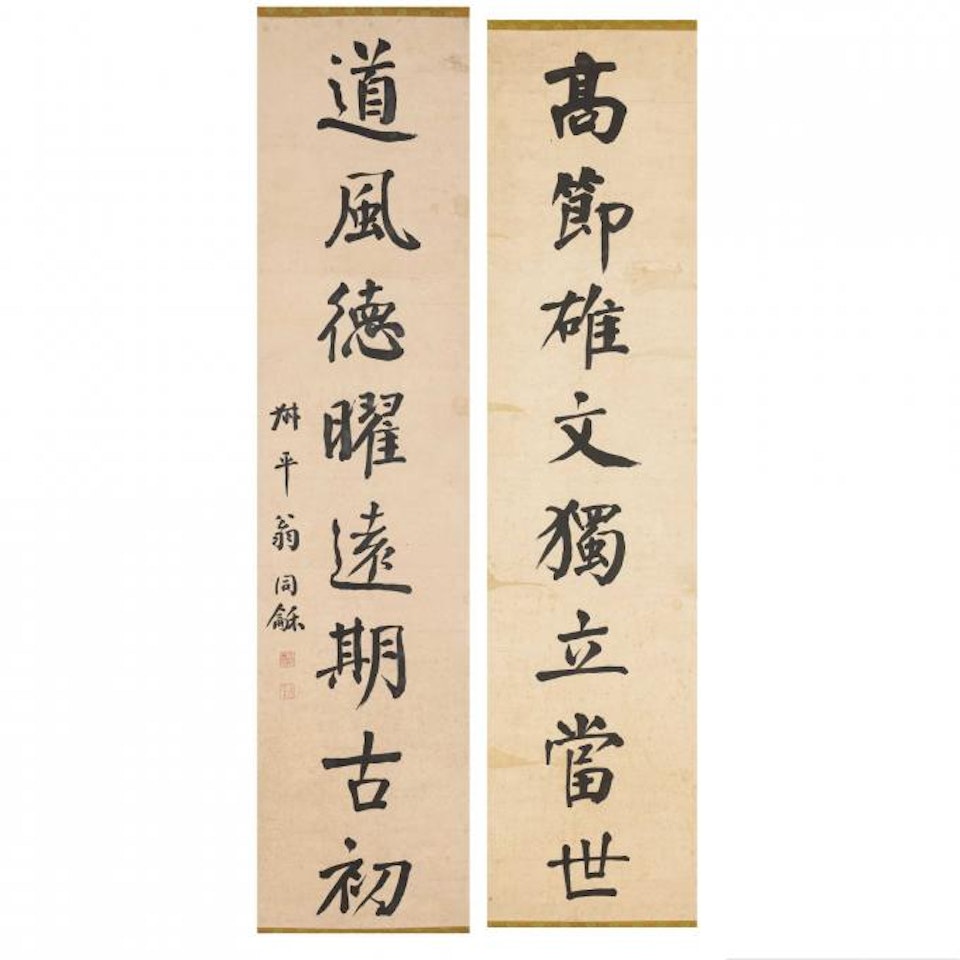 高節雄文獨立當世
道風德曜遠期古初
叔平翁同龢